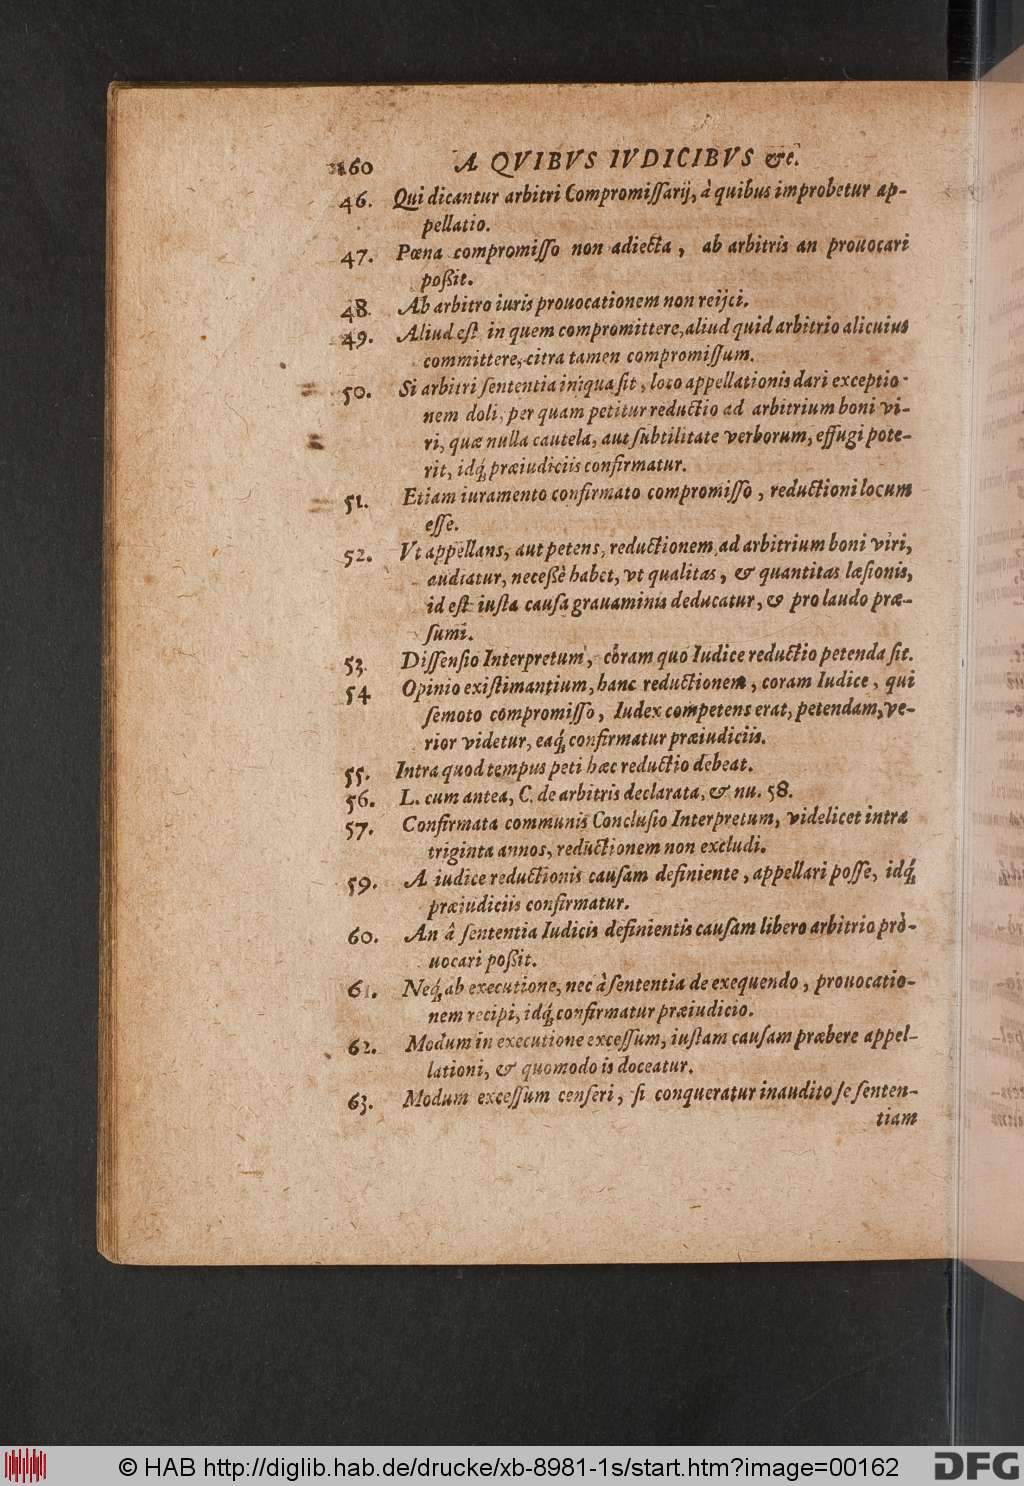 160 A QVIBVS IVDICIBVS &c.
46. Qui dicantur arbitri Compromiſſarij, à quibus improbetur ap-
pellatio.
47. Pœna compromiſſo non adiecta, ab arbitris an prouocari
poßit.
48. Ab arbitro iuris prouocationem non reijci.
49. Aliud eſt in quem compromittere, aliud quid arbitrio alicuius
committere, citra tamen compromiſſum.
50. Si arbitri ſententia iniqua ſit, loco appellationis dari exceptio-
nem doli, per quam petitur reductio ad arbitrium boni vi-
ri, quæ nulla cautela, aut ſubtilitate verborum, effugi pote-
rit, idq́; præiudiciis confirmatur.
51. Etiam iuramento confirmato compromiſſo, reductioni locum
eſſe.
52. Vt appellans, aut petens, reductionem ad arbitrium boni viri,
audiatur, neceßè habet, vt qualitas, & quantitas læſionis,
id eſt iuſta cauſa grauaminis deducatur, & pro laudo præ-
ſumi.
53 Diſſenſio Interpretum, coram quo Iudice reductio petenda ſit.
54 Opinio exiſtimantium, hanc reductionem, coram Iudice, qui
ſemoto compromiſſo, Iudex competens erat, petendam, ve-
rior videtur, eaq́; confirmatur præiudiciis.
55. Intra quod tempus peti hæc reductio debeat.
56. L. cum antea, C. de arbitris declarata, & nu. 58.
57. Confirmata communis Concluſio Interpretum, videlicet intra
triginta annos, reductionem non excludi.
59. A iudice reductionis cauſam definiente, appellari poſſe, idq́;
præiudiciis confirmatur.
60. An â ſententia Iudicis definientis cauſam libero arbitrio prò-
uocari poßit.
61. Neq́; ab executione, nec à ſententia de exequendo, prouocatio-
nem recipi, idq́; confirmatur præiudicio.
62. Modum in executione exceſſum, iuſtam cauſam præbere appel-
lationi, & quomodo is doceatur.
63. Modum exceſſum cenſeri, ſi conqueratur inaudito ſe ſenten-
tiam
© HAB http://diglib.hab.de/drucke/xb-8981-1s/start.htm?image=00162
DFG